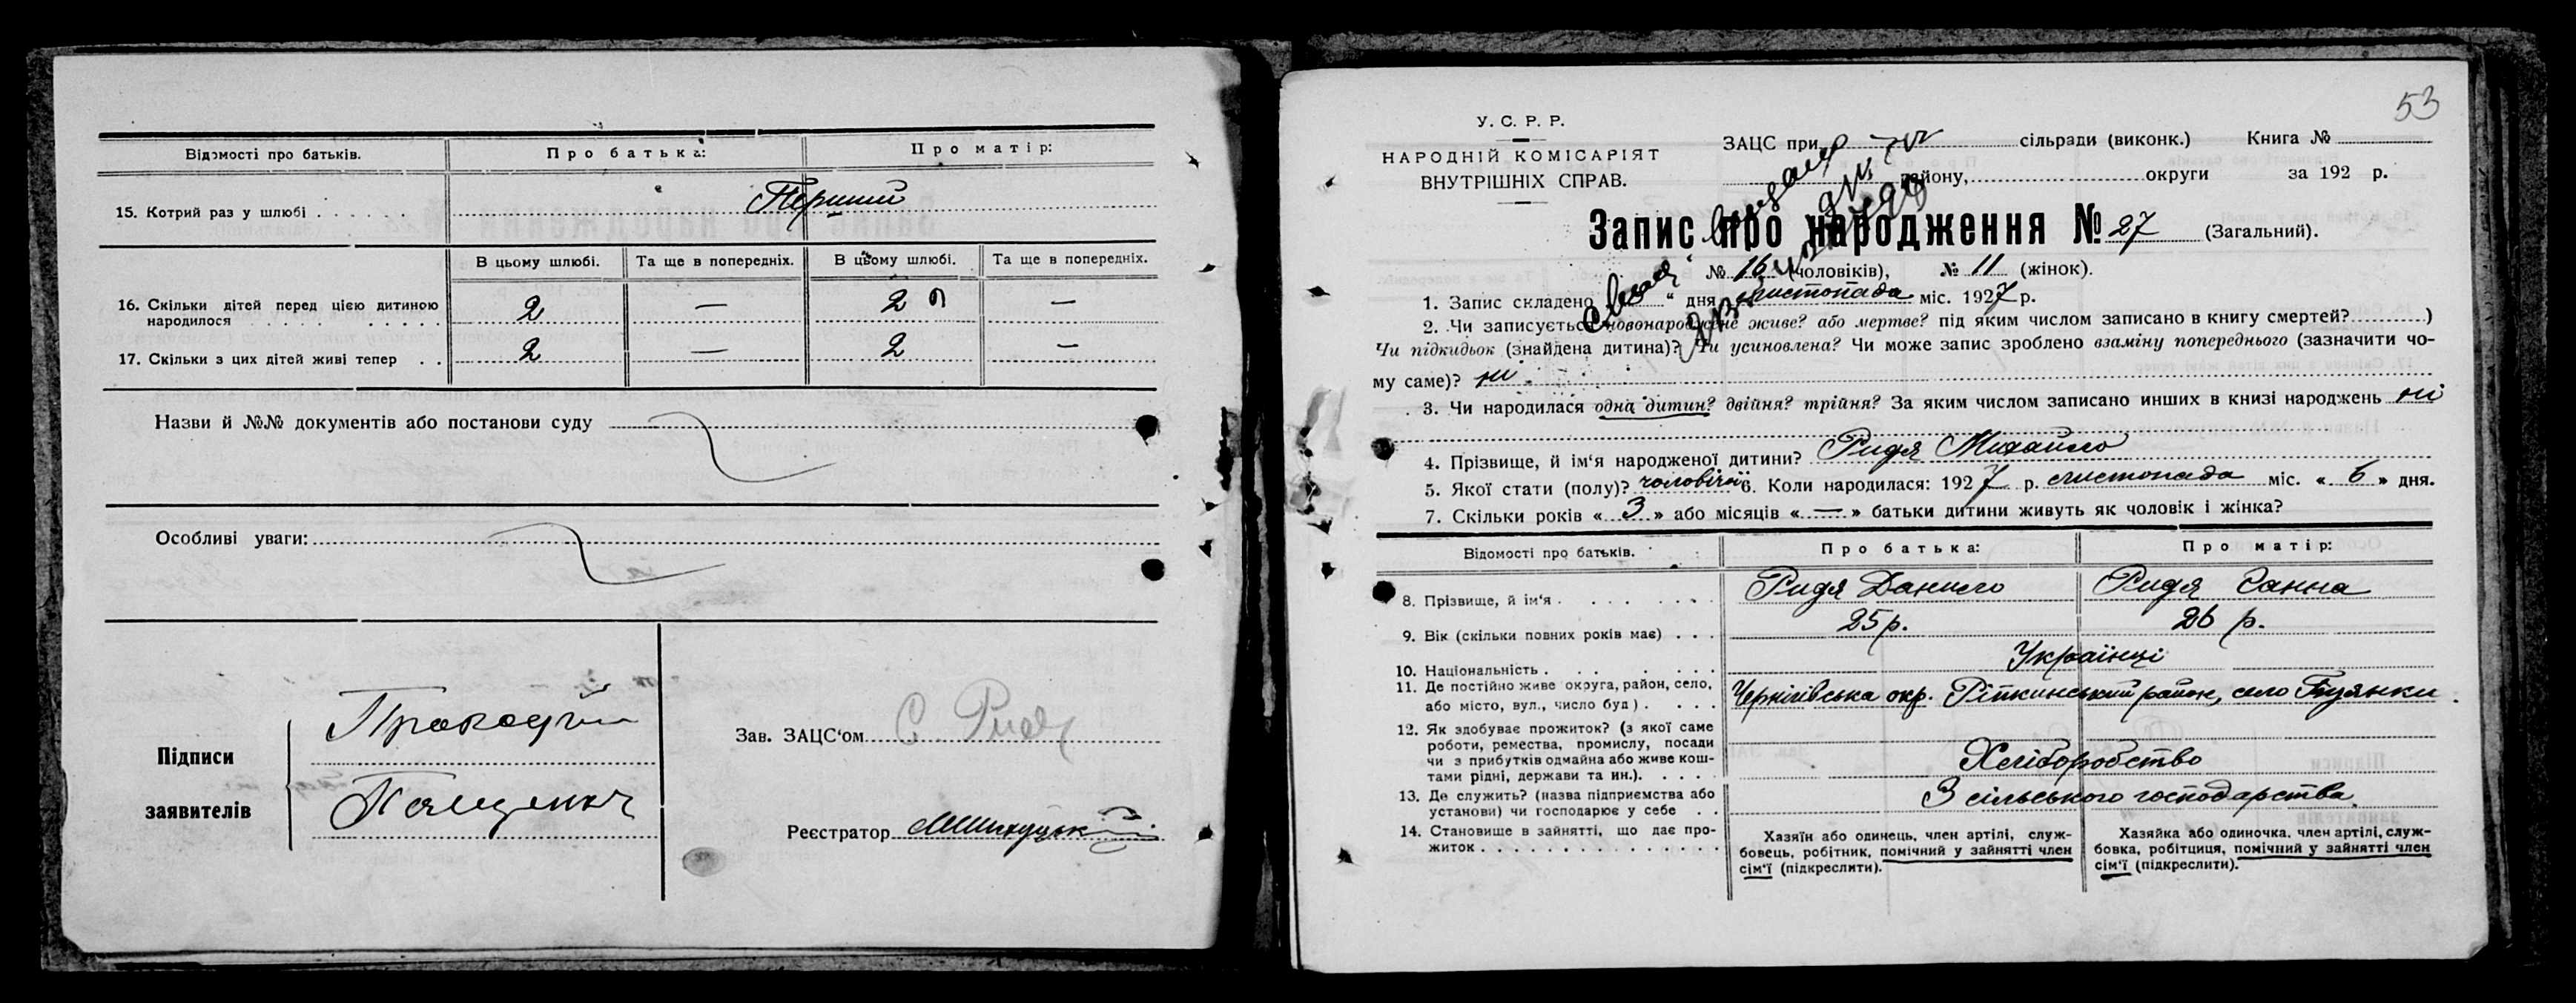 Відомості про батьків. Про батька: Про матір:
15. Котрий раз у шлюбі . . . . . . Перший
В цьому шлюбі. Та ще в попередніх. В цьому шлюбі. Та ще в попередніх.
16. Скільки дітей перед цією дитиною
народилося . . . . . . . . . 2 — 2 —
17. Скільки з цих дітей живі тепер . . 2 — 2 —
Назви й №№ документів або постанови суду
Особливі уваги:
Підписи
заявителів
Зав. ЗАЦС‘ом С. Ридя
Реєстратор
53
У. С. Р. Р.
НАРОДНІЙ КОМІСАРІЯТ
ВНУТРІШНІХ СПРАВ.
ЗАЦС при сільради (виконк.) Книга №
району, округи за 192 р.
Запис про народження № 27 (Загальний).
№ 16 (чоловіків), № 11 (жінок).
1. Запис складено “ дня листопада міс. 1927 р.
2. Чи записується новонароджене живе? або мертве? під яким числом записано в книгу смертей? )
Чи підкидьок (знайдена дитина)? Чи усиновлена? Чи може запис зроблено взаміну попереднього (зазначити чо-
му саме)? ні
3. Чи народилася одна дитин? двійня? трійня? За яким числом записано инших в книзі народжень ні
4. Прізвище, й ім‘я народженої дитини? Ридя Михайло
5. Якої стати (полу)? чоловічої 6. Коли народилася: 1927 р. листопада міс. « 6 » дня.
7. Скільки років « 3 » або місяців « — » батьки дитини живуть як чоловік і жінка?
Відомості про батьків. Про батька: Про матір:
8. Прізвище, й ім‘я . . . . . . Ридя Данило Ридя Ганна
9. Вік (скільки повних років має) . . . 25 р. 26 р.
10. Національність . . . . . . Українці
11. Де постійно живе округа, район, село,
або місто, вул., число буд ) . . . . Чернігівська окр. Ріпкинський район, село
12. Як здобуває прожиток? (з якої саме
роботи, ремества, промислу, посади
чи з прибутків одмайна або живе кош-
тами рідні, держави та ин.). . . . . Хліборобство
13. Де служить? (назва підприємства або
установи) чи господарює у себе . . З сільського господарства
14. Становище в зайнятті, що дає про-
житок . . . . . . . . . . . . . .
Хазяїн або одинець, член артілі, служ-
бовець, робітник, помічний у зайнятті член
сім‘ї (підкреслити).
Хазяйка або одиночка, член артілі, служ-
бовка, робітниця, помічний у зайнятті член
сім‘ї (підкреслити).